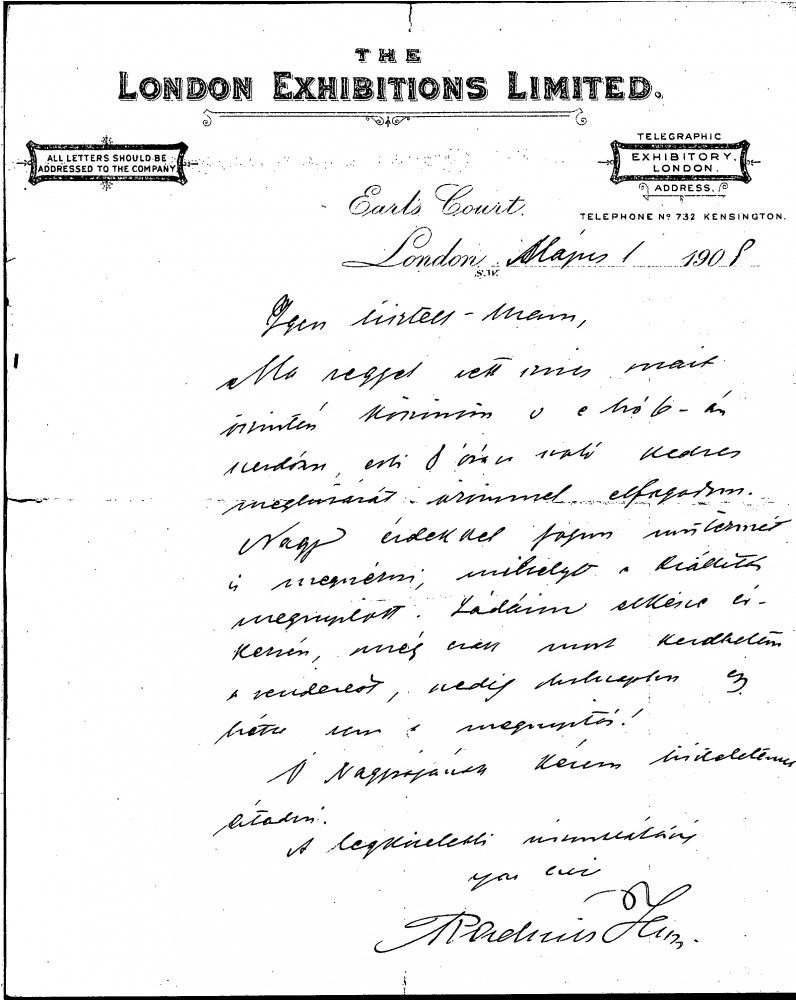 THE
LONDON EXHIBITIONS LIMITED.
ALL LETTERS SHOULD BE
ADDRESSED TO THE COMPANY
TELEGRAPHIC
EXHIBITORY.
LONDON.
ADDRESS.
TELEPHONE Nº 732 KENSINGTON.
Earl's Court.
London, S.W. Május 1 1908
Igen tisztelt
Ma reggel vett
őszintén köszönöm s e hó 6-án
szerdán, esti 8 órára való kedves
meghívását örömmel elfogadom.
Nagy érdekkel fogom műtermét
is megnézni, mihelyt a kiállítás
megnyílott. Ládáim elkésve ér-
keztek, még csak most kezdhetem
a rendezést, pedig holnaphoz egy
hétre van a megnyitás!
Ő Nagyságának kérem tiszteletemet
átadni.
A legközelebbi viszontlátásig